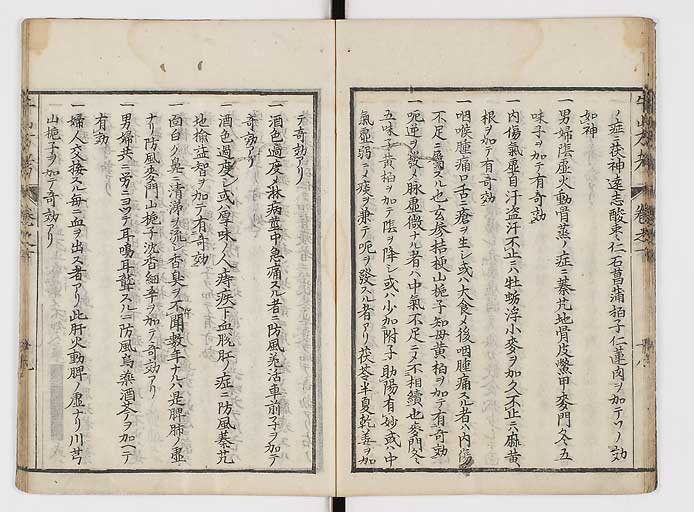 ノ症ニ茯神遠志酸棗仁石菖蒲柏子仁蓮肉ヲ加テソノ効
如神
一 男婦陰虚火動骨蒸ノ症ニ秦艽地骨皮鱉甲麥門冬五
味子ヲ加テ有竒効
一 内傷氣虚自汗盗汗不止ニハ牡蛎浮小麥ヲ加久不止ニハ麻黄
根ヲ加テ有竒効
一 咽喉腫痛口舌ニ瘡ヲ生シ或ハ大食ノ後咽腫痛スル者ハ内傷
不足ニ属スル也玄參桔梗山梔子知母黄柏ヲ加テ有竒効
一 呃逆ヲ發メ脉虚微ナル者ハ中氣不足ニメ不相續也麥門冬
五味子黄柏ヲ加テ陰ヲ降シ或ハ少加附子助陽有妙或ハ中
氣虚弱ニメ痰ヲ兼テ呃ヲ發スル者アリ茯苓半夏乾姜ヲ加
テ竒効アリ
一 酒色過度メ淋病莖中急痛スル者ニ防風羌活車前子ヲ加テ
竒効アリ
一 酒色過度シ或ハ厚味ノ人痔疾下血脱肛ノ症ニ防風秦艽
地榆益智ヲ加テ有竒効
一 面白ク鼻ニ清涕ヲ流シ香臭ヲ不聞數年ナルハ是脾肺ノ虚
ナリ防風麥門山梔子沈香細辛ヲ加テ竒効アリ
一 男婦共ニ労ニヨツテ耳鳴耳聾スルニ防風烏藥酒芩ヲ加ヘテ
有効
一 婦人交接スル毎ニ血ヲ出ス者アリ此肝火動脾ノ虚ナリ川芎
山梔子ヲ加テ竒効アリ